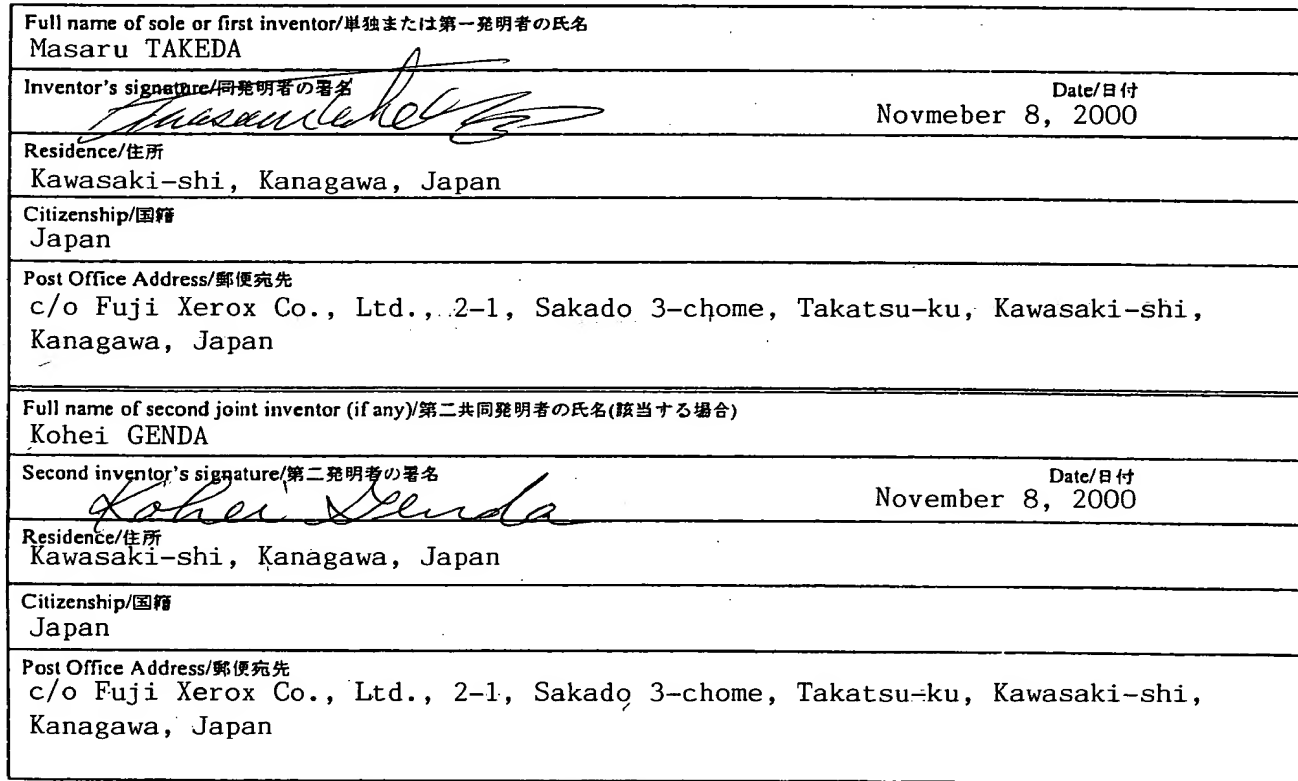 Full name of sole or first inventor/単独または第一発明者の氏名
Masaru TAKEDA
Inventor's signature/同発明者の署名
Date/日付
Novmeber 8, 2000
Residence/住所
Kawasaki-shi, Kanagawa, Japan
Citizenship/国籍
Japan
Post Office Address/郵便宛先
c/o Fuji Xerox Co., Ltd., 2-1, Sakado 3-chome, Takatsu-ku, Kawasaki-shi,
Kanagawa, Japan
Full name of second joint inventor (if any)/第二共同発明者の氏名(該当する場合)
Kohei GENDA
Second inventor's signature/第二発明者の署名
Date/日付
Kohei Genda
November 8, 2000
Residence/住所
Kawasaki-shi, Kanagawa, Japan
Citizenship/国籍
Japan
Post Office Address/郵便宛先
c/o Fuji Xerox Co., Ltd., 2-1, Sakado 3-chome, Takatsu-ku, Kawasaki-shi,
Kanagawa, Japan